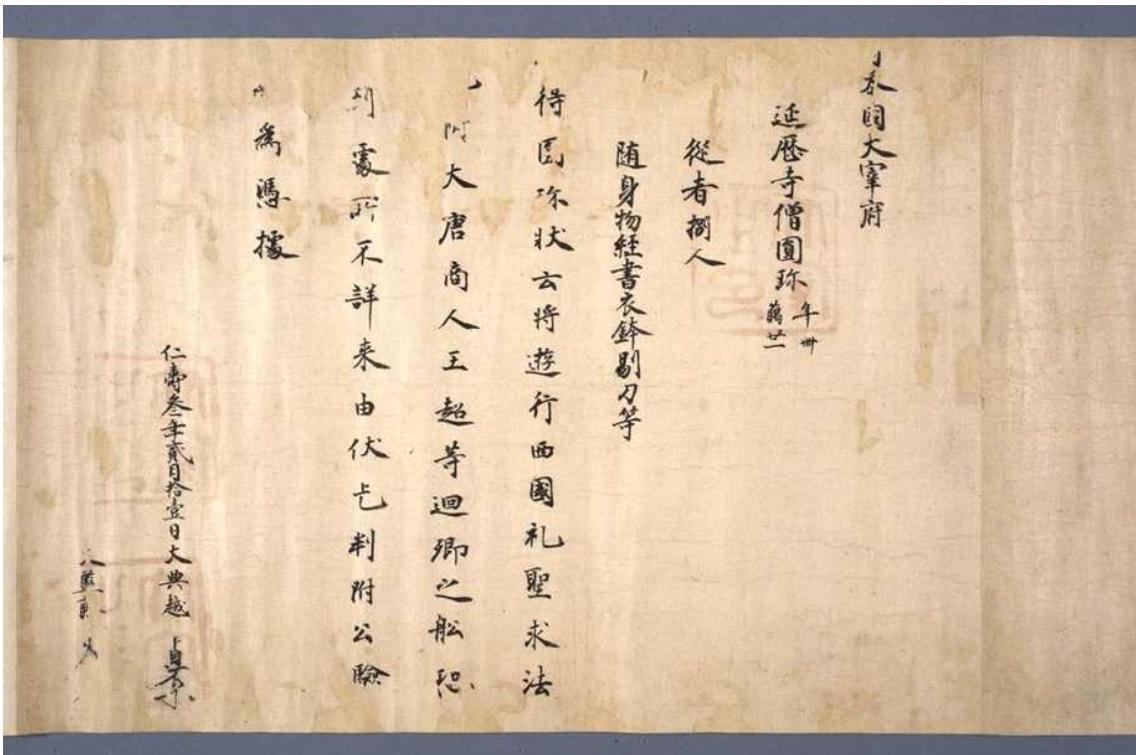 本國大宰府
延曆寺僧圓珎 年卌
臈廿一
從者捌人
随身物經書衣鉢剔刀等
得圓珎狀云將遊行西國礼聖求法
附大唐商人王超等迴鄉之舩恐
到處所不詳来由伏乞判附公驗
為憑據
仁壽叁年貳月拾壹日大典越